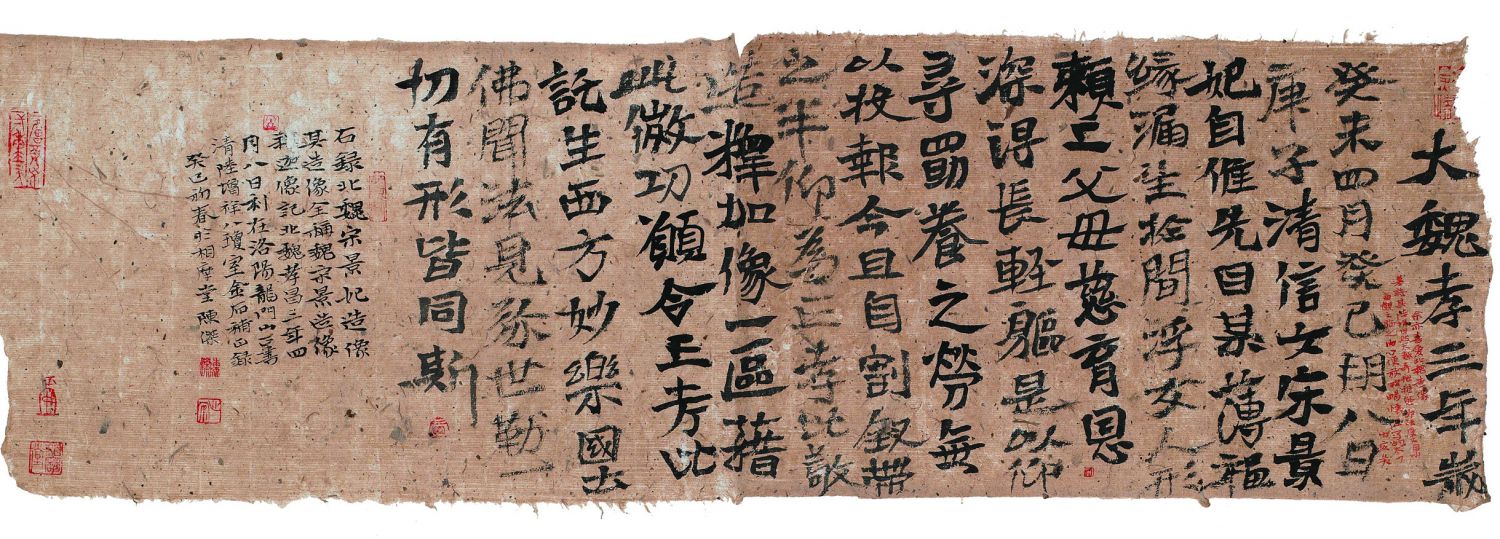 大魏孝三年歲
癸未四月癸巳朔八日
庚子清信女宋景
妃自惟先目某薄福
緣漏生於閻浮女人形
賴亡父母慈育恩
深得長輕軀是以仰
尋勖養之勞無
以投報今且自割釵帶
之半仰為亡考比敬
造釋加像一區藉
此微功願令亡考比
託生西方妙樂國土
佛聞法見弥世勒一
切有形皆同斯
石錄北魏宗景妃造像
其造像全稱魏宗景造像
釋迦像記北魏孝昌三年四
月八日刻在洛陽龍門山
清陸增祥八瓊室金石補正錄
癸巳初春於相摩堂陳傑